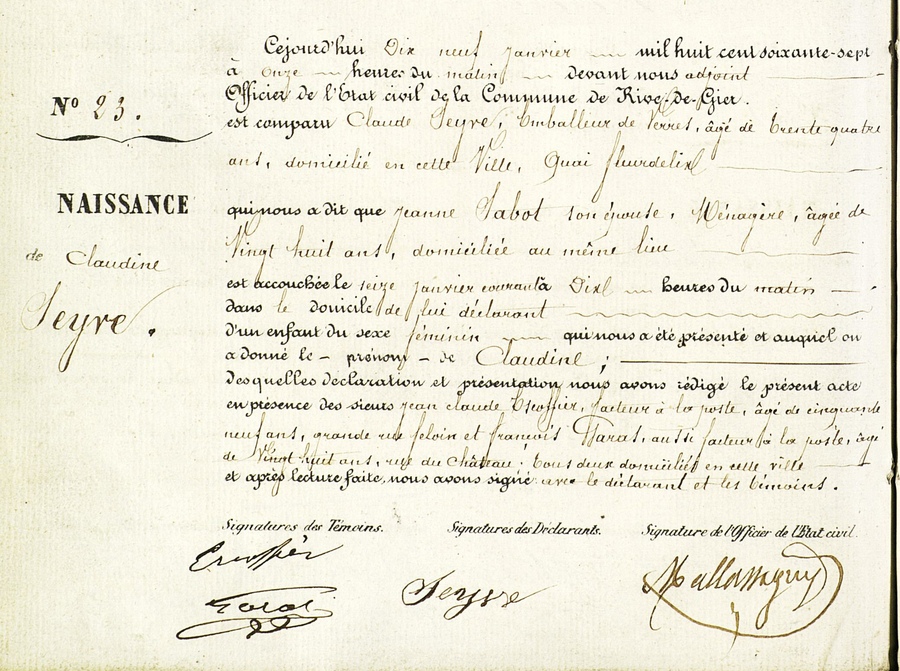 Cejourd'hui Dix neuf janvier mil huit cent soixante-sept
à onze heures du matin devant nous adjoint
Officier de l'Etat civil de la Commune de Rive-de-Gier.
N° 23.
est comparu Claude Seyre, Emballeur de Verres, âgé de trente quatre
ans, domicilié en cette Ville, Quai fleurdelix
NAISSANCE
qui nous a dit que jeanne Sabot son épouse, Ménagère, âgée de
Vingt huit ans, domiciliée au même lieu
de Claudine
Seyre.
est accouchée le seize janvier courant à Dix heures du matin
dans le domicile de lui déclarant
d'un enfant du sexe féminin qui nous a été présenté et auquel on
a donné le - prénom - de Claudine ;
Desquelles déclaration et présentation nous avons rédigé le présent acte
en présence des sieurs jean claude facteur à la poste, âgé de cinquante
neuf ans, grande rue feloin et françois aussi facteur à la poste, âgé
de Vingt huit ans, rue du Château ; tous deux domiciliés en cette ville
et après lecture faite, nous avons signé avec le déclarant et les témoins.
Signatures des Témoins. Signatures des Déclarants. Signature de l'Officier de l'Etat civil.
Seyre